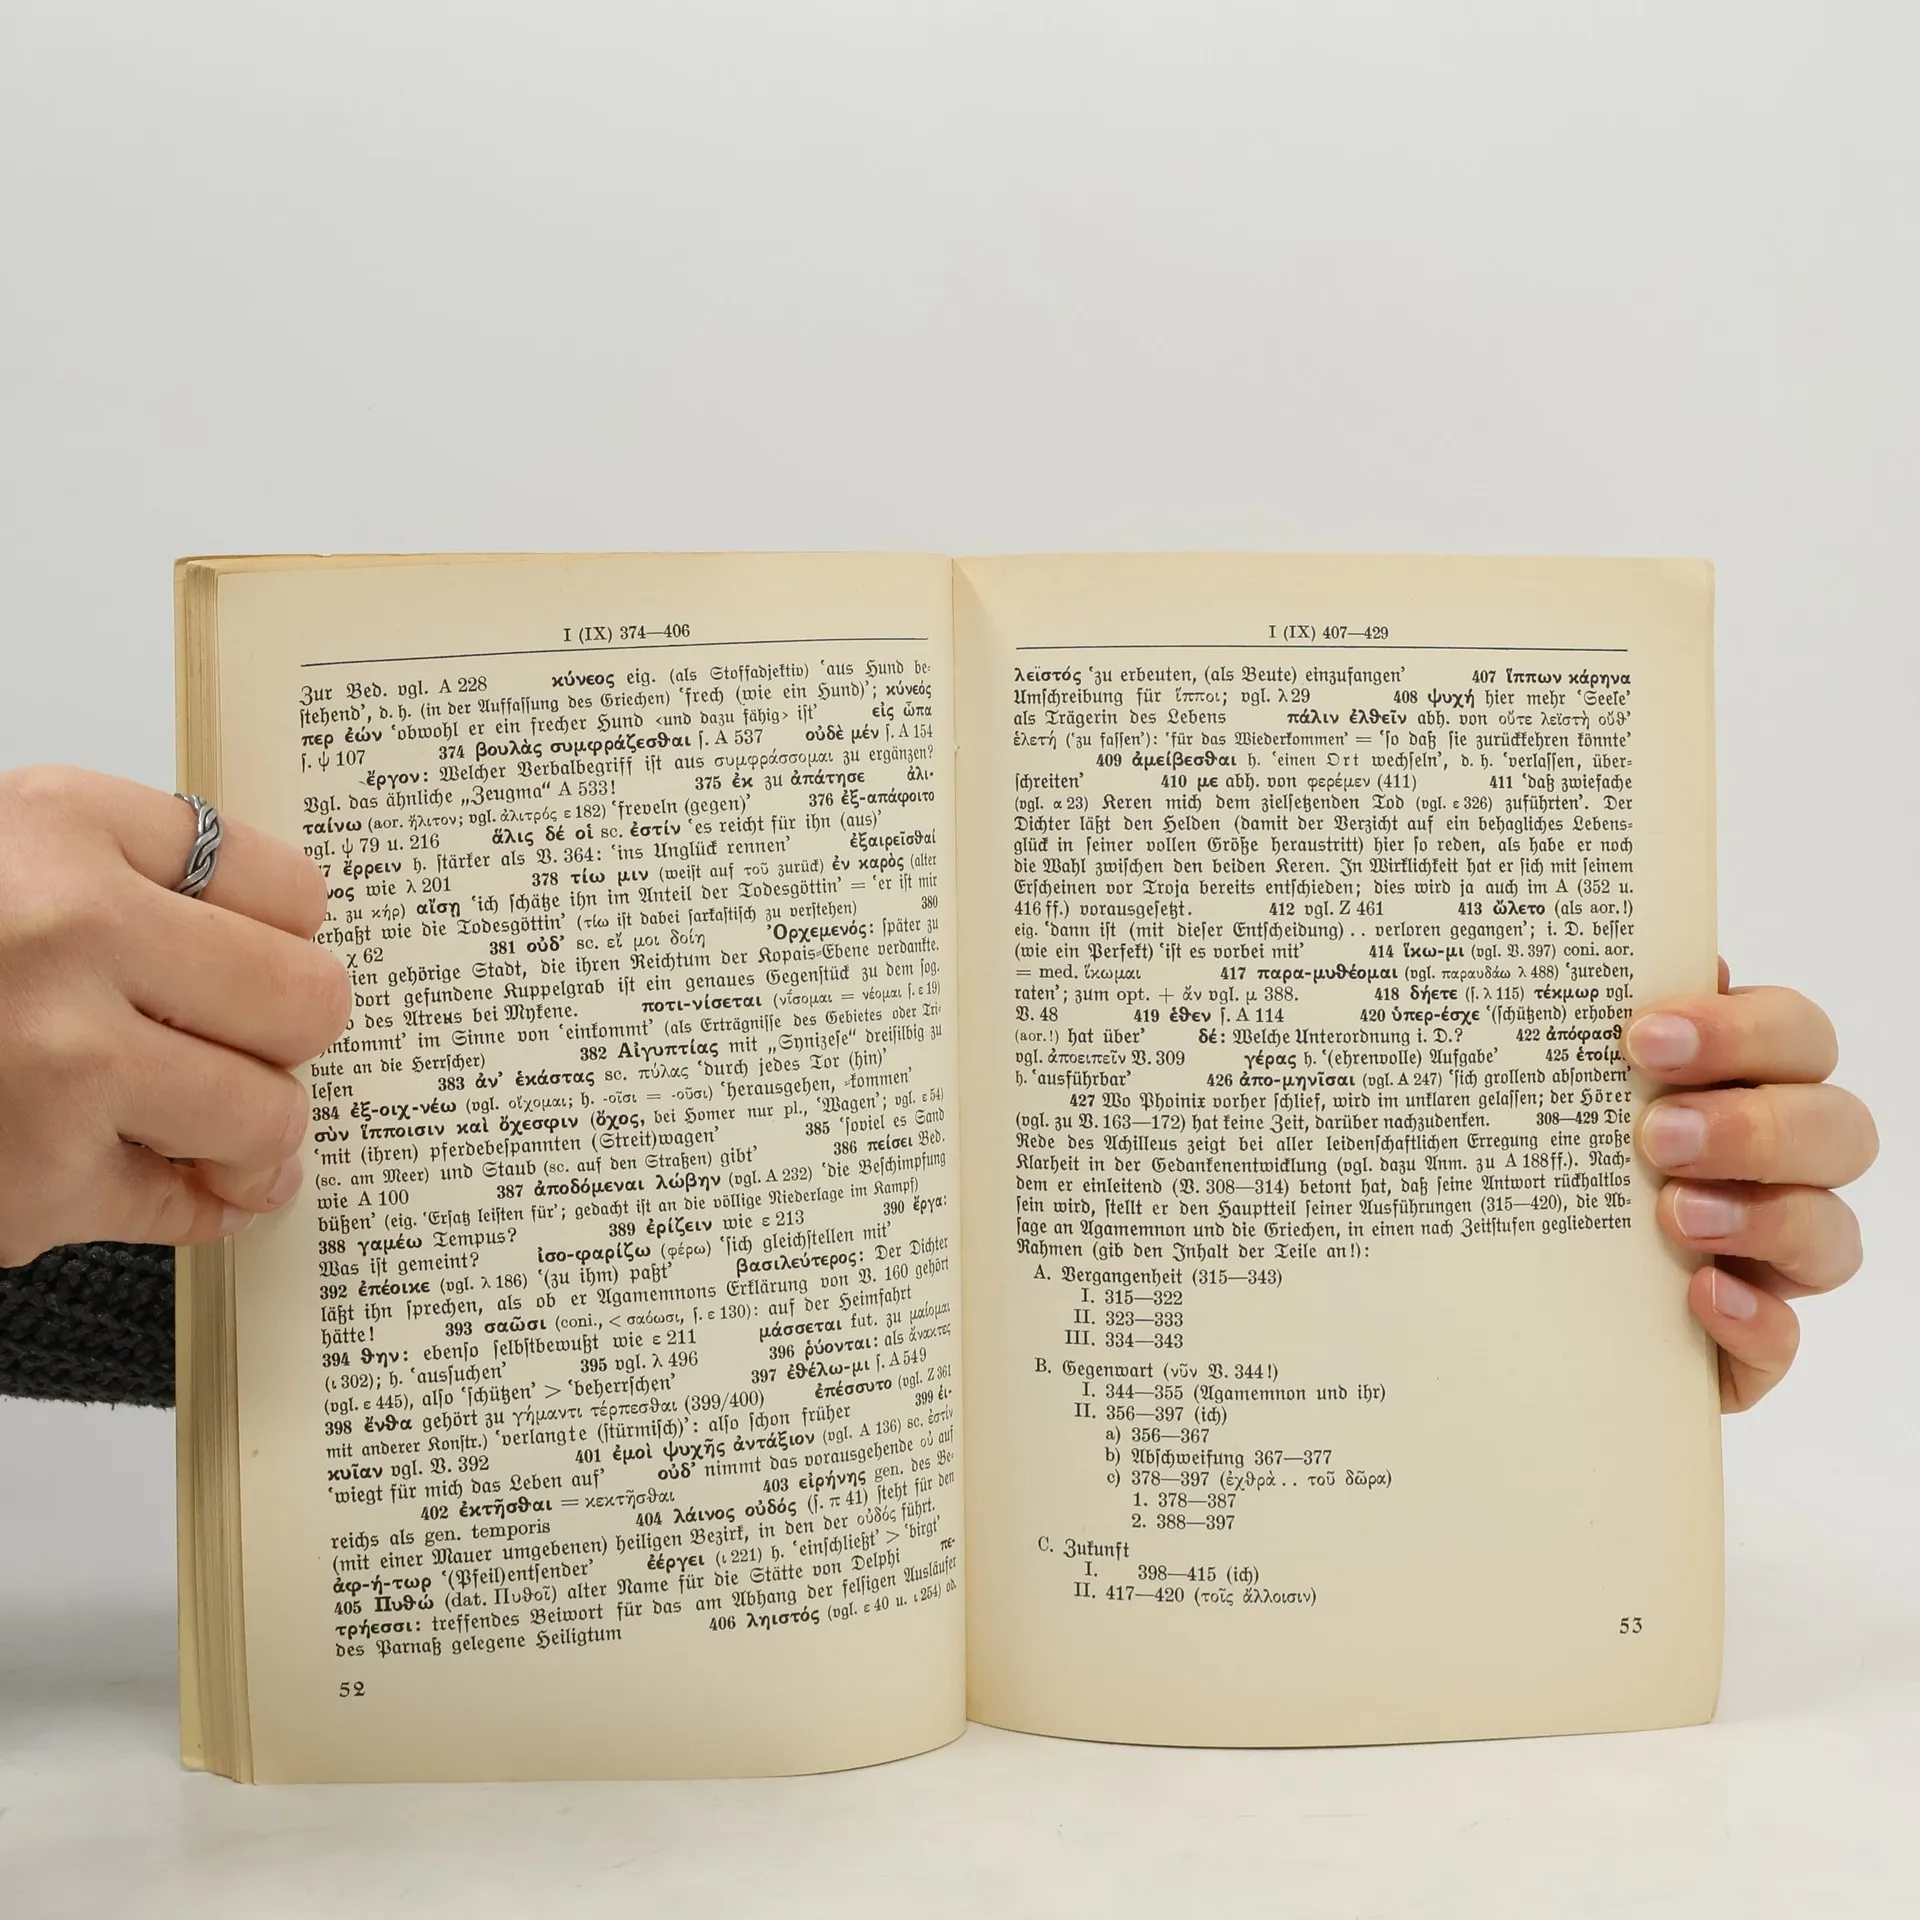 I (IX) 374—406
Zur Bed. vgl. A 228 κύνεος eig. (als Stoffadjektiv) ‘aus Hund be-
stehend’, d. h. (in der Auffassung des Griechen) ‘frech (wie ein Hund)’; κύνεός
περ ἐών ‘obwohl er ein frecher Hund <und dazu fähig> ist’ εἰς ὦπα
s. ψ 107 374 βουλὰς συμφράζεσθαι s. A 537 οὐδὲ μέν s. A 154
ἔργον: Welcher Verbalbegriff ist aus συμφράσσομαι zu ergänzen?
Vgl. das ähnliche „Zeugma“ A 533! 375 ἐκ zu ἀπάτησε ἀλι-
ταίνω (aor. ἤλιτον; vgl. ἀλιτρός ε 182) ‘freveln (gegen)’ 376 ἐξ-απάφοιτο
vgl. ψ 79 u. 216 ἅλις δέ οἱ sc. ἐστίν ‘es reicht für ihn (aus)’
7 ἔρρειν h. stärker als V. 364: ‘ins Unglück rennen’ ἐξαιρεῖσθαί
νος wie λ 201 378 τίω μιν (weist auf τοῦ zurück) ἐν καρὸς (alter
zu κήρ) αἴσῃ ‘ich schätze ihn im Anteil der Todesgöttin’ = ‘er ist mir
erhaßt wie die Todesgöttin’ (τίω ist dabei sarkastisch zu verstehen) 380
χ 62 381 οὐδ’ sc. εἴ μοι δοίη Ὀρχεμενός: später zu
ien gehörige Stadt, die ihren Reichtum der Kopais-Ebene verdankte.
dort gefundene Kuppelgrab ist ein genaues Gegenstück zu dem sog.
des Atreus bei Mykene. ποτι-νίσεται (νίσομαι = νέομαι s. ε 19)
inkommt’ im Sinne von ‘einkommt’ (als Erträgnisse des Gebietes oder Tri-
bute an die Herrscher) 382 Αἰγυπτίας mit „Synizese“ dreisilbig zu
lesen 383 ἀν’ ἑκάστας sc. πύλας ‘durch jedes Tor (hin)’
384 ἐξ-οιχ-νέω (vgl. οἴχομαι; h. -οῖσι = -οῦσι) ‘herausgehen, -kommen’
σὺν ἵπποισιν καὶ ὄχεσφιν (ὄχος, bei Homer nur pl., ‘Wagen’; vgl. ε 54)
‘mit (ihren) pferdebespannten (Streit)wagen’ 385 ‘soviel es Sand
(sc. am Meer) und Staub (sc. auf den Straßen) gibt’ 386 πείσει Bed.
wie A 100 387 ἀποδόμεναι λώβην (vgl. A 232) ‘die Beschimpfung
büßen’ (eig. ‘Ersatz leisten für’; gedacht ist an die völlige Niederlage im Kampf)
388 γαμέω Tempus? 389 ἐρίζειν wie ε 213 390 ἔργα:
Was ist gemeint? ἰσο-φαρίζω (φέρω) ‘sich gleichstellen mit’
392 ἐπέοικε (vgl. λ 186) ‘(zu ihm) paßt’ βασιλεύτερος: Der Dichter
läßt ihn sprechen, als ob er Agamemnons Erklärung von V. 160 gehört
hätte! 393 σαῶσι (coni., < σαόωσι, s. ε 130): auf der Heimfahrt
394 θην: ebenso selbstbewußt wie ε 211 μάσσεται fut. zu μαίομαι
(ι 302); h. ‘aussuchen’ 395 vgl. λ 496 396 ῥύονται: als ἄνακτες
(vgl. ε 445), also ‘schützen’ > ‘beherrschen’ 397 ἐθέλω-μι s. A 549
398 ἔνθα gehört zu γήμαντι τέρπεσθαι (399/400) ἐπέσσυτο (vgl. Z 361
mit anderer Konstr.) ‘verlangte (stürmisch)’: also schon früher 399 ἐι-
κυῖαν vgl. V. 392 401 ἐμοὶ ψυχῆς ἀντάξιον (vgl. A 136) sc. ἐστίν
‘wiegt für mich das Leben auf’ οὐδ’ nimmt das vorausgehende οὐ auf
402 ἐκτῆσθαι = κεκτῆσθαι 403 εἰρήνης gen. des Be-
reichs als gen. temporis 404 λάινος οὐδός (s. π 41) steht für den
(mit einer Mauer umgebenen) heiligen Bezirk, in den der οὐδός führt.
ἀφ-ή-τωρ ‘(Pfeil)entsender’ ἐέργει (ι 221) h. ‘einschließt’ > ‘birgt’
405 Πυθώ (dat. Πυθοῖ) alter Name für die Stätte von Delphi πε-
τρήεσσι: treffendes Beiwort für das am Abhang der felsigen Ausläufer
des Parnaß gelegene Heiligtum 406 ληιστός (vgl. ε 40 u. ι 254) od.
52
I (IX) 407—429
λεϊστός ‘zu erbeuten, (als Beute) einzufangen’ 407 ἵππων κάρηνα
Umschreibung für ἵπποι; vgl. λ 29 408 ψυχή hier mehr ‘Seele’
als Trägerin des Lebens πάλιν ἐλθεῖν abh. von οὔτε λεϊστὴ οὔθ’
ἑλετή (‘zu fassen’): ‘für das Wiederkommen’ = ‘so daß sie zurückkehren könnte’
409 ἀμείβεσθαι h. ‘einen Ort wechseln’, d. h. ‘verlassen, über-
schreiten’ 410 με abh. von φερέμεν (411) 411 ‘daß zwiefache
(vgl. α 23) Keren mich dem zielsetzenden Tod (vgl. ε 326) zuführten’. Der
Dichter läßt den Helden (damit der Verzicht auf ein behagliches Lebens-
glück in seiner vollen Größe heraustritt) hier so reden, als habe er noch
die Wahl zwischen den beiden Keren. In Wirklichkeit hat er sich mit seinem
Erscheinen vor Troja bereits entschieden; dies wird ja auch im A (352 u.
416 ff.) vorausgesetzt. 412 vgl. Z 461 413 ὤλετο (als aor.!)
eig. ‘dann ist (mit dieser Entscheidung) . . verloren gegangen’; i. D. besser
(wie ein Perfekt) ‘ist es vorbei mit’ 414 ἵκω-μι (vgl. V. 397) coni. aor.
= med. ἵκωμαι 417 παρα-μυθέομαι (vgl. παραυδάω λ 488) ‘zureden,
raten’; zum opt. + ἄν vgl. μ 388. 418 δήετε (s. λ 115) τέκμωρ vgl.
V. 48 419 ἑθεν s. A 114 420 ὑπερ-έσχε ‘(schützend) erhoben
(aor.!) hat über’ δέ: Welche Unterordnung i. D.? 422 ἀπόφασθ
vgl. ἀποειπεῖν V. 309 γέρας h. ‘(ehrenvolle) Aufgabe’ 425 ἑτοίμ
h. ‘ausführbar’ 426 ἀπο-μηνῖσαι (vgl. A 247) ‘sich grollend absondern’
427 Wo Phoinix vorher schlief, wird im unklaren gelassen; der Hörer
(vgl. zu V. 163—172) hat keine Zeit, darüber nachzudenken. 308—429 Die
Rede des Achilleus zeigt bei aller leidenschaftlichen Erregung eine große
Klarheit in der Gedankenentwicklung (vgl. dazu Anm. zu A 188 ff.). Nach-
dem er einleitend (V. 308—314) betont hat, daß seine Antwort rückhaltlos
sein wird, stellt er den Hauptteil seiner Ausführungen (315—420), die Ab-
sage an Agamemnon und die Griechen, in einen nach Zeitstufen gegliederten
Rahmen (gib den Inhalt der Teile an!):
A. Vergangenheit (315—343)
I. 315—322
II. 323—333
III. 334—343
B. Gegenwart (νῦν V. 344!)
I. 344—355 (Agamemnon und ihr)
II. 356—397 (ich)
a) 356—367
b) Abschweifung 367—377
c) 378—397 (ἐχθρὰ . . τοῦ δῶρα)
1. 378—387
2. 388—397
C. Zukunft
I. 398—415 (ich)
II. 417—420 (τοῖς ἄλλοισιν)
53